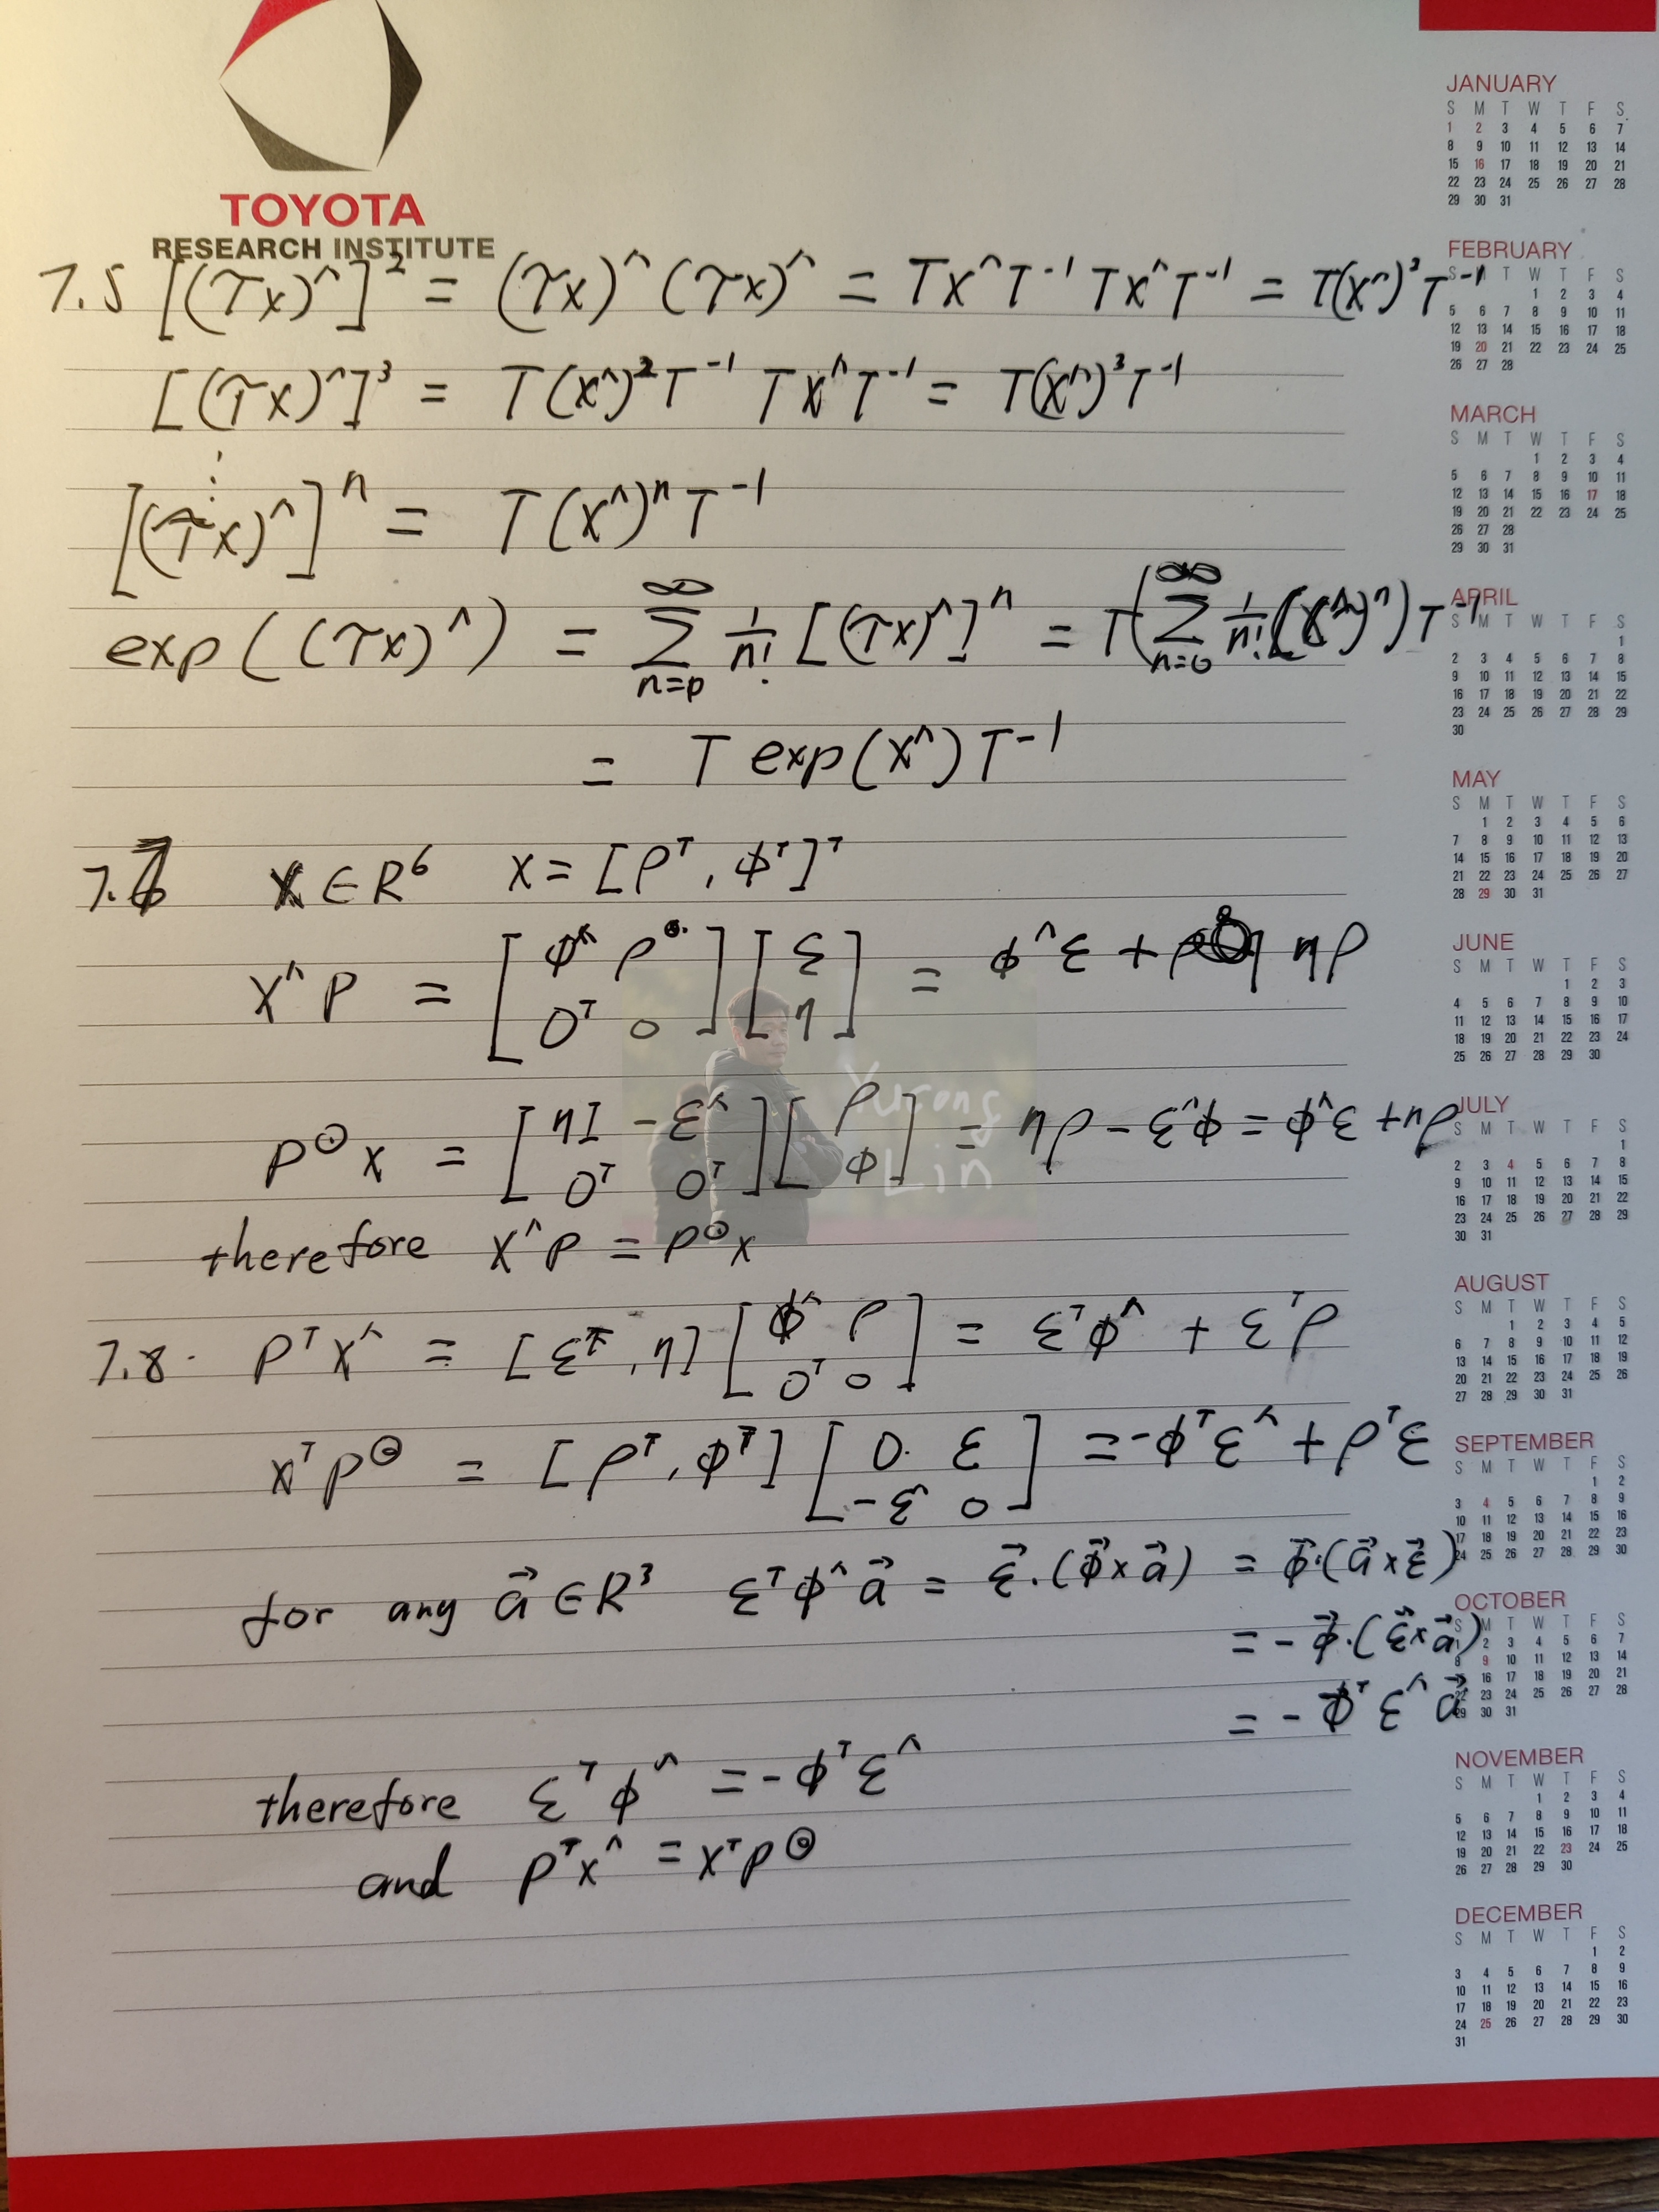 TOYOTA
RESEARCH INSTITUTE
7.5 [(𝒯x)^]² = (𝒯x)^ (𝒯x)^ = Tx^T⁻¹ Tx^T⁻¹ = T(x^)²T⁻¹
[(𝒯x)^]³ = T(x^)²T⁻¹ Tx^T⁻¹ = T(x^)³T⁻¹
⋮
[(𝒯x)^]ⁿ = T(x^)ⁿT⁻¹
exp((𝒯x)^) = ∑_{n=0}^{∞} 1/n! [(𝒯x)^]ⁿ = T(∑_{n=0}^{∞} 1/n! (x^)ⁿ)T⁻¹
= T exp(x^)T⁻¹
x ∈ R⁶ x = [ρᵀ, φᵀ]ᵀ
x^p = [φ^ ρ; 0ᵀ 0][ε; η] = φ^ε + ηρ
p⊙x = [ηI -ε^; 0ᵀ 0ᵀ][ρ; φ] = ηρ - ε^φ = φ^ε + ηρ
Yurong
Lin
therefore x^p = p⊙x
7.8. pᵀx^ = [εᵀ, η][φ^ ρ; 0ᵀ 0] = εᵀφ^ + εᵀρ
xᵀp⊚ = [ρᵀ, φᵀ][0 ε; -ε^ 0] = -φᵀε^ + ρᵀε
for any a⃗ ∈ R³ εᵀφ^a⃗ = ε⃗·(φ⃗×a⃗) = φ⃗·(a⃗×ε⃗)
= -φ⃗·(ε⃗×a⃗)
= -φᵀε^a⃗
therefore εᵀφ^ = -φᵀε^
and pᵀx^ = xᵀp⊚
JANUARY
S M T W T F S
1 2 3 4 5 6 7
8 9 10 11 12 13 14
15 16 17 18 19 20 21
22 23 24 25 26 27 28
29 30 31
FEBRUARY
S M T W T F S
1 2 3 4
5 6 7 8 9 10 11
12 13 14 15 16 17 18
19 20 21 22 23 24 25
26 27 28
MARCH
S M T W T F S
1 2 3 4
5 6 7 8 9 10 11
12 13 14 15 16 17 18
19 20 21 22 23 24 25
26 27 28
29 30 31
APRIL
S M T W T F S
1
2 3 4 5 6 7 8
9 10 11 12 13 14 15
16 17 18 19 20 21 22
23 24 25 26 27 28 29
30
MAY
S M T W T F S
1 2 3 4 5 6
7 8 9 10 11 12 13
14 15 16 17 18 19 20
21 22 23 24 25 26 27
28 29 30 31
JUNE
S M T W T F S
1 2 3
4 5 6 7 8 9 10
11 12 13 14 15 16 17
18 19 20 21 22 23 24
25 26 27 28 29 30
JULY
S M T W T F S
1
2 3 4 5 6 7 8
9 10 11 12 13 14 15
16 17 18 19 20 21 22
23 24 25 26 27 28 29
30 31
AUGUST
S M T W T F S
1 2 3 4 5
6 7 8 9 10 11 12
13 14 15 16 17 18 19
20 21 22 23 24 25 26
27 28 29 30 31
SEPTEMBER
S M T W T F S
1 2
3 4 5 6 7 8 9
10 11 12 13 14 15 16
17 18 19 20 21 22 23
24 25 26 27 28 29 30
OCTOBER
S M T W T F S
1 2 3 4 5 6 7
8 9 10 11 12 13 14
16 17 18 19 20 21
23 24 25 26 27 28
29 30 31
NOVEMBER
S M T W T F S
1 2 3 4
5 6 7 8 9 10 11
12 13 14 15 16 17 18
19 20 21 22 23 24 25
26 27 28 29 30
DECEMBER
S M T W T F S
1 2
3 4 5 6 7 8 9
10 11 12 13 14 15 16
17 18 19 20 21 22 23
24 25 26 27 28 29 30
31